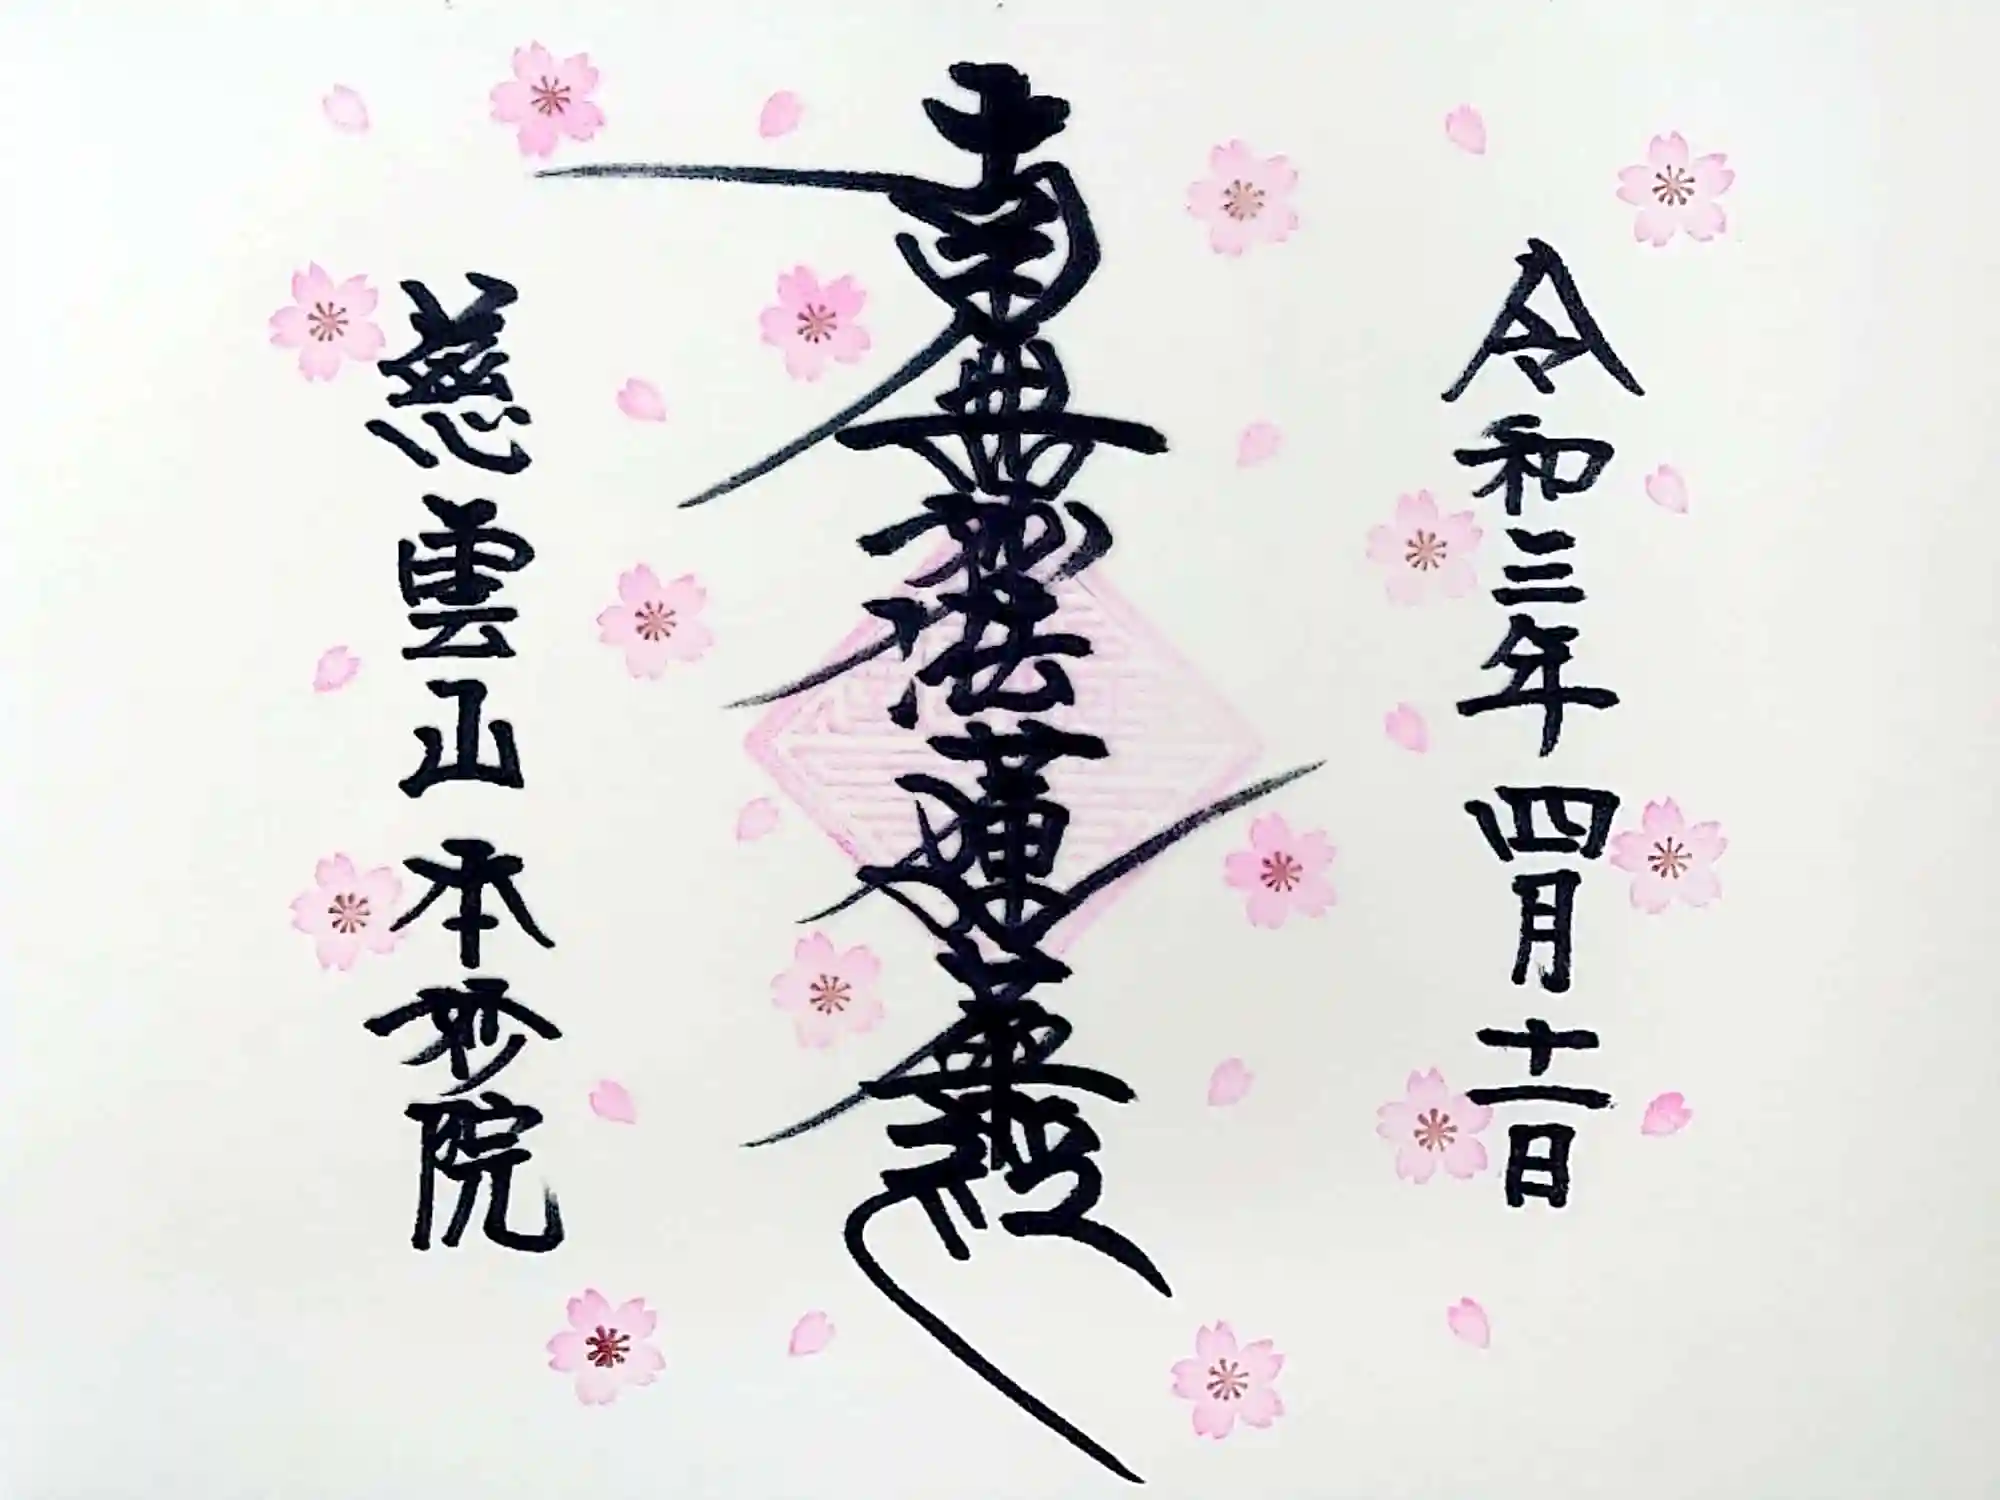 令和三年四月十一日
南無妙法蓮華経
慈雲山 本妙院